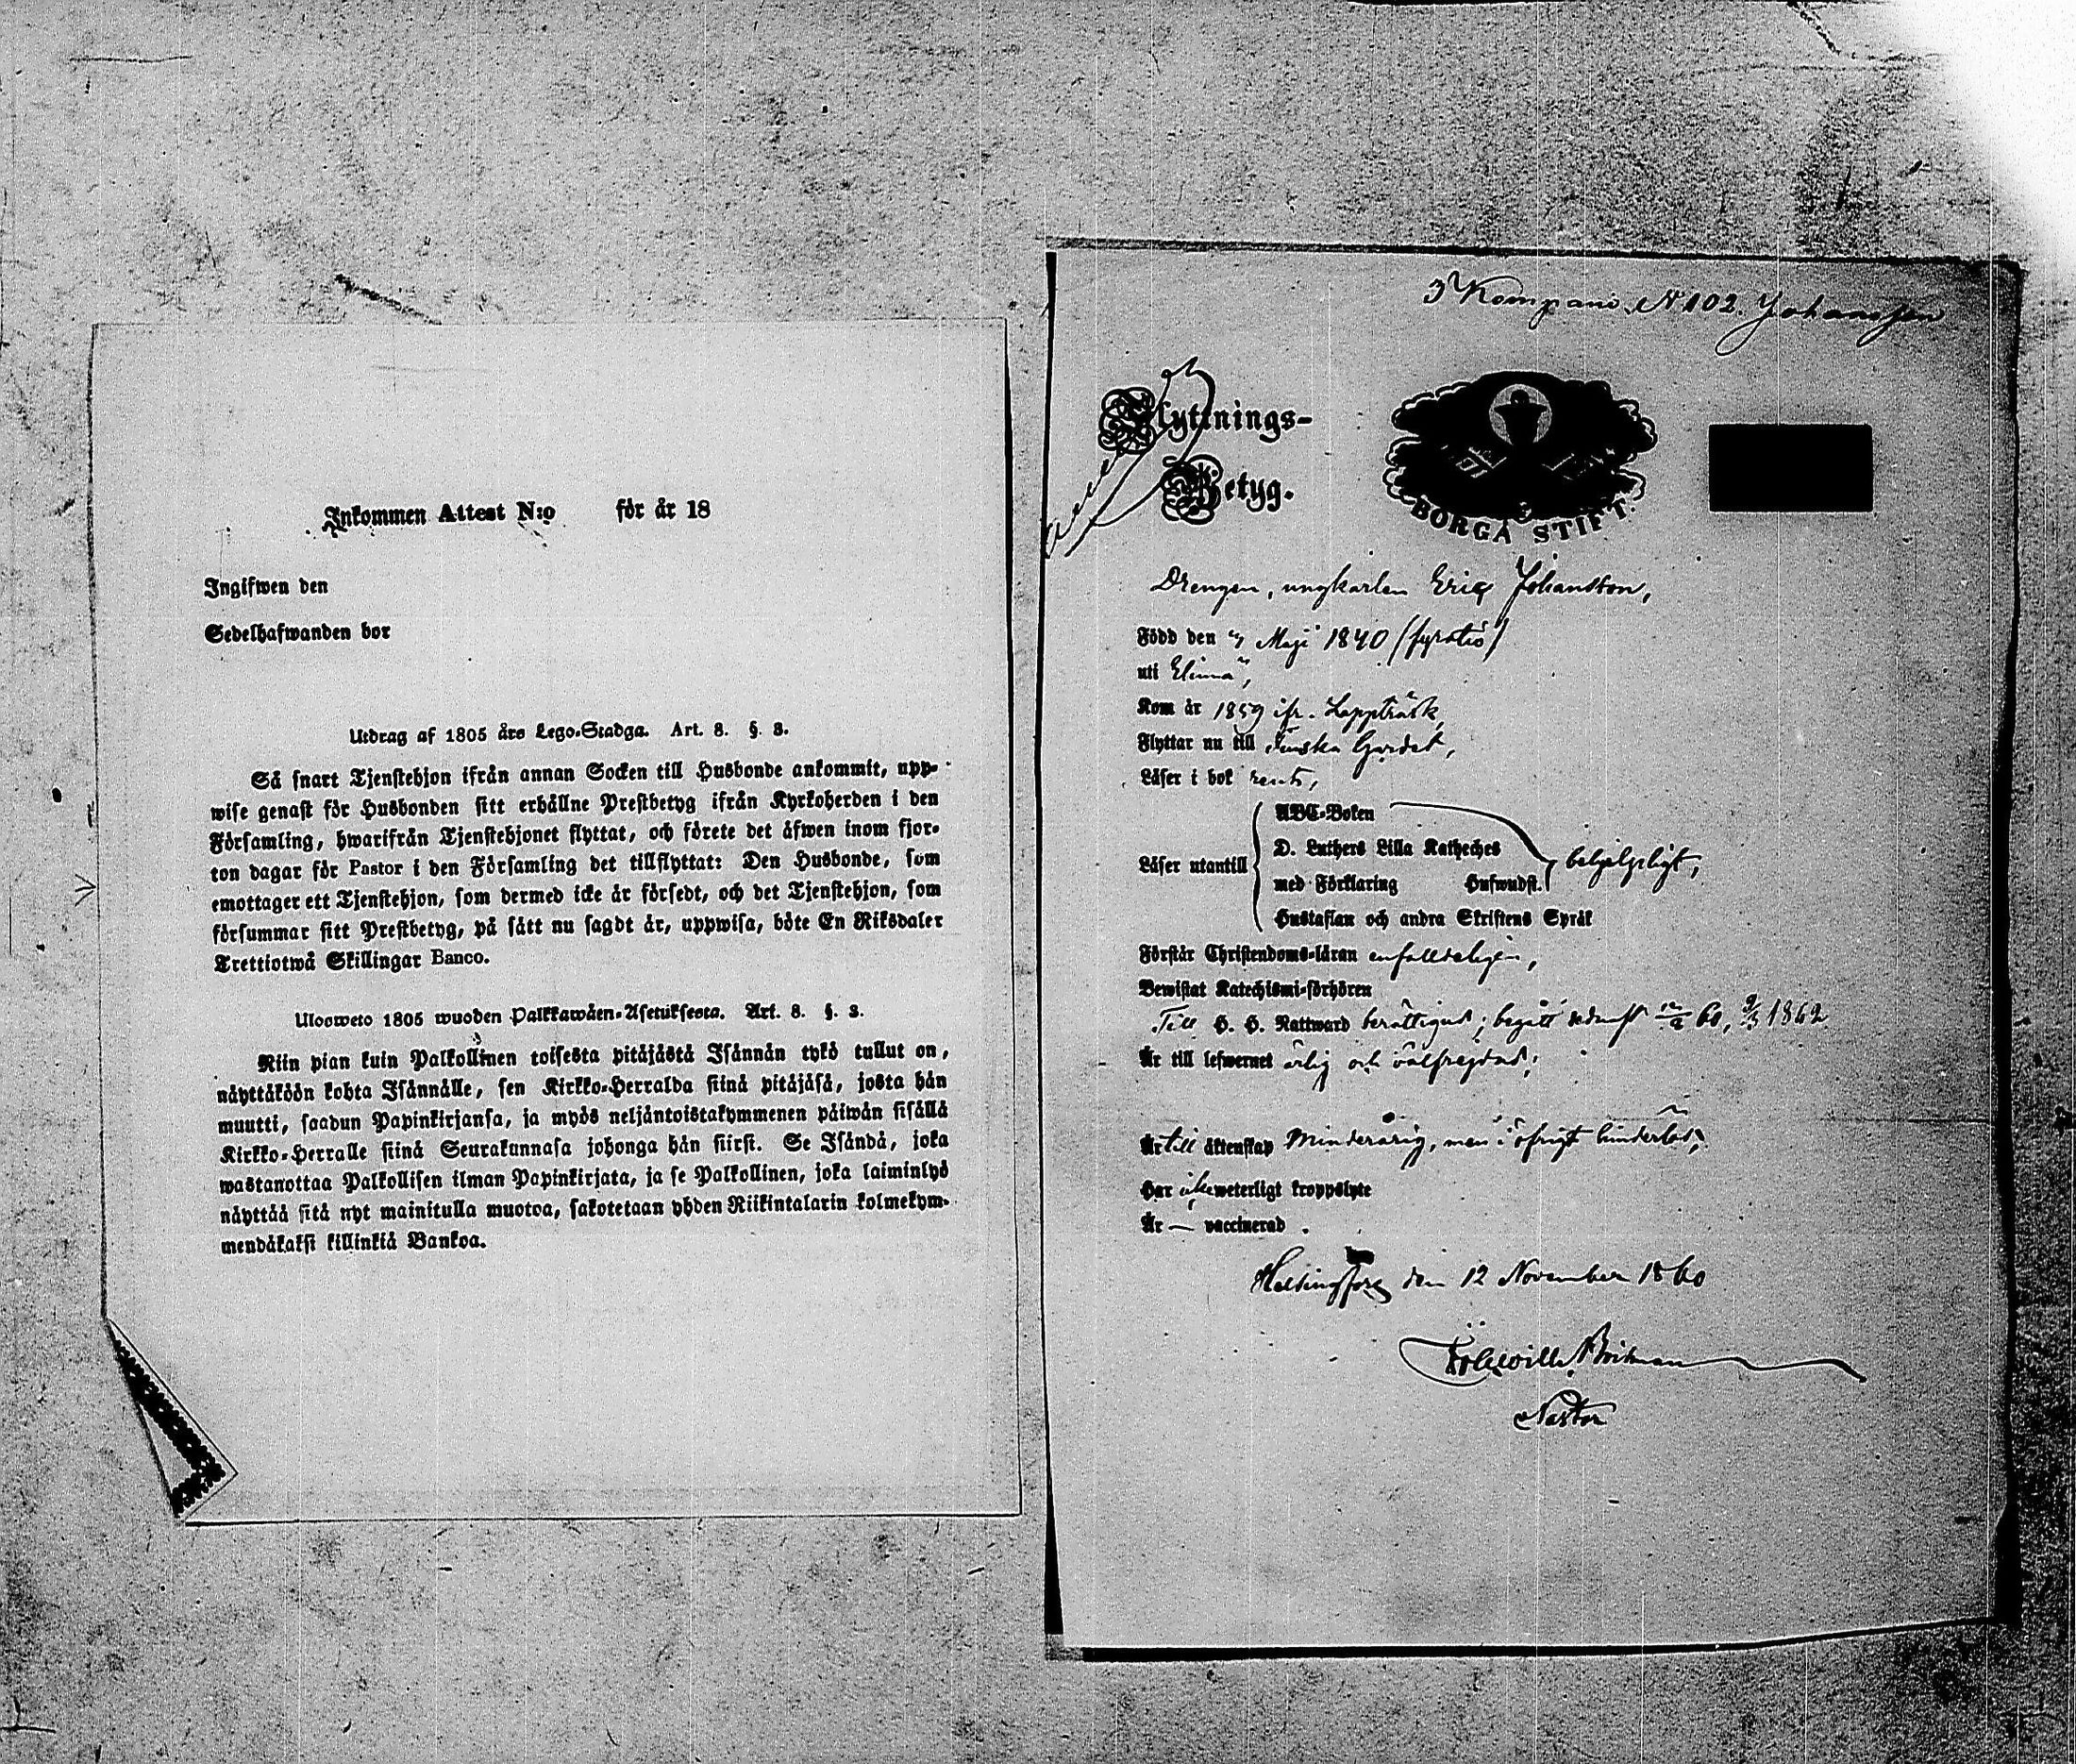 Inkommen Attest N:o för år 18
Ingifwen den
Sedelhafwanden bor
Utdrag af 1805 års Lego-Stadga. Art. 8. §. 3.
Så snart Tjenstehjon ifrån annan Socken till Husbonde ankommit, upp-
wise genast för Husbonden sitt erhållne Prestbetyg ifrån Kyrkoherden i den
Församling, hwarifrån Tjenstehjonet flyttat, och förete det äfwen inom fjor-
ton dagar för Pastor i den Församling det tillflyttat: Den Husbonde, som
emottager ett Tjenstehjon, som dermed icke är försedt, och det Tjenstehjon, som
försummar sitt Prestbetyg, på sätt nu sagdt är, uppwisa, böte En Riksdaler
Trettiotwå Skillingar Banco.
Ulosweto 1805 wuoden Palkkawäen-Asetuksesta. Art. 8. §. 3.
Niin pian kuin Palkollinen toisesta pitäjästä Isännän tykö tullut on,
näyttäköön kohta Isännälle, sen Kirkko-Herralda siinä pitäjäsä, josta hän
muutti, saadun Papinkirjansa, ja myös neljäntoistakymmenen päiwän sisällä
Kirkko-Herralle siinä Seurakunnasa johonga hän siirst. Se Isändä, joka
wastanottaa Palkollisen ilman Papinkirjata, ja se Palkollinen, joka laiminlyö
näyttää sitä nyt mainitulla muotoa, sakotetaan yhden Riikintalarin kolmekym-
mendäkaksi killinkiä Bankoa.
3 Kompani. N 102. Johansson
Flyttnings-
Betyg.
BORGÅ STIFT.
Drengen, ungkarlen Eric Johansson,
Född den 7 Maji 1840 (fyratio)
uti Elimä,
Kom år 1859 ifr. Lappträsk,
Flyttar nu till Finska Gardet,
Läser i bok rent,
Läser utantill
ABC-Boken
D. Luthers Lilla Katheches
med Förklaring Hufwudst.
Hustaflan och andra Skriftens Språk
behjelpligt,
Förstår Christendoms-läran enfalldeligen,
Bewistat Katechismi-förhören
Till H. H. Nattward berättigad; begått 60, 1862
Är till lefwernet ärlig och välfrejdad;
Är till äktenskap Minderårig, men i öfrigt hinderlös;
Har icke weterligt kroppslyte
Är — vaccinerad.
Helsingfors den 12 November 1860
Pastor